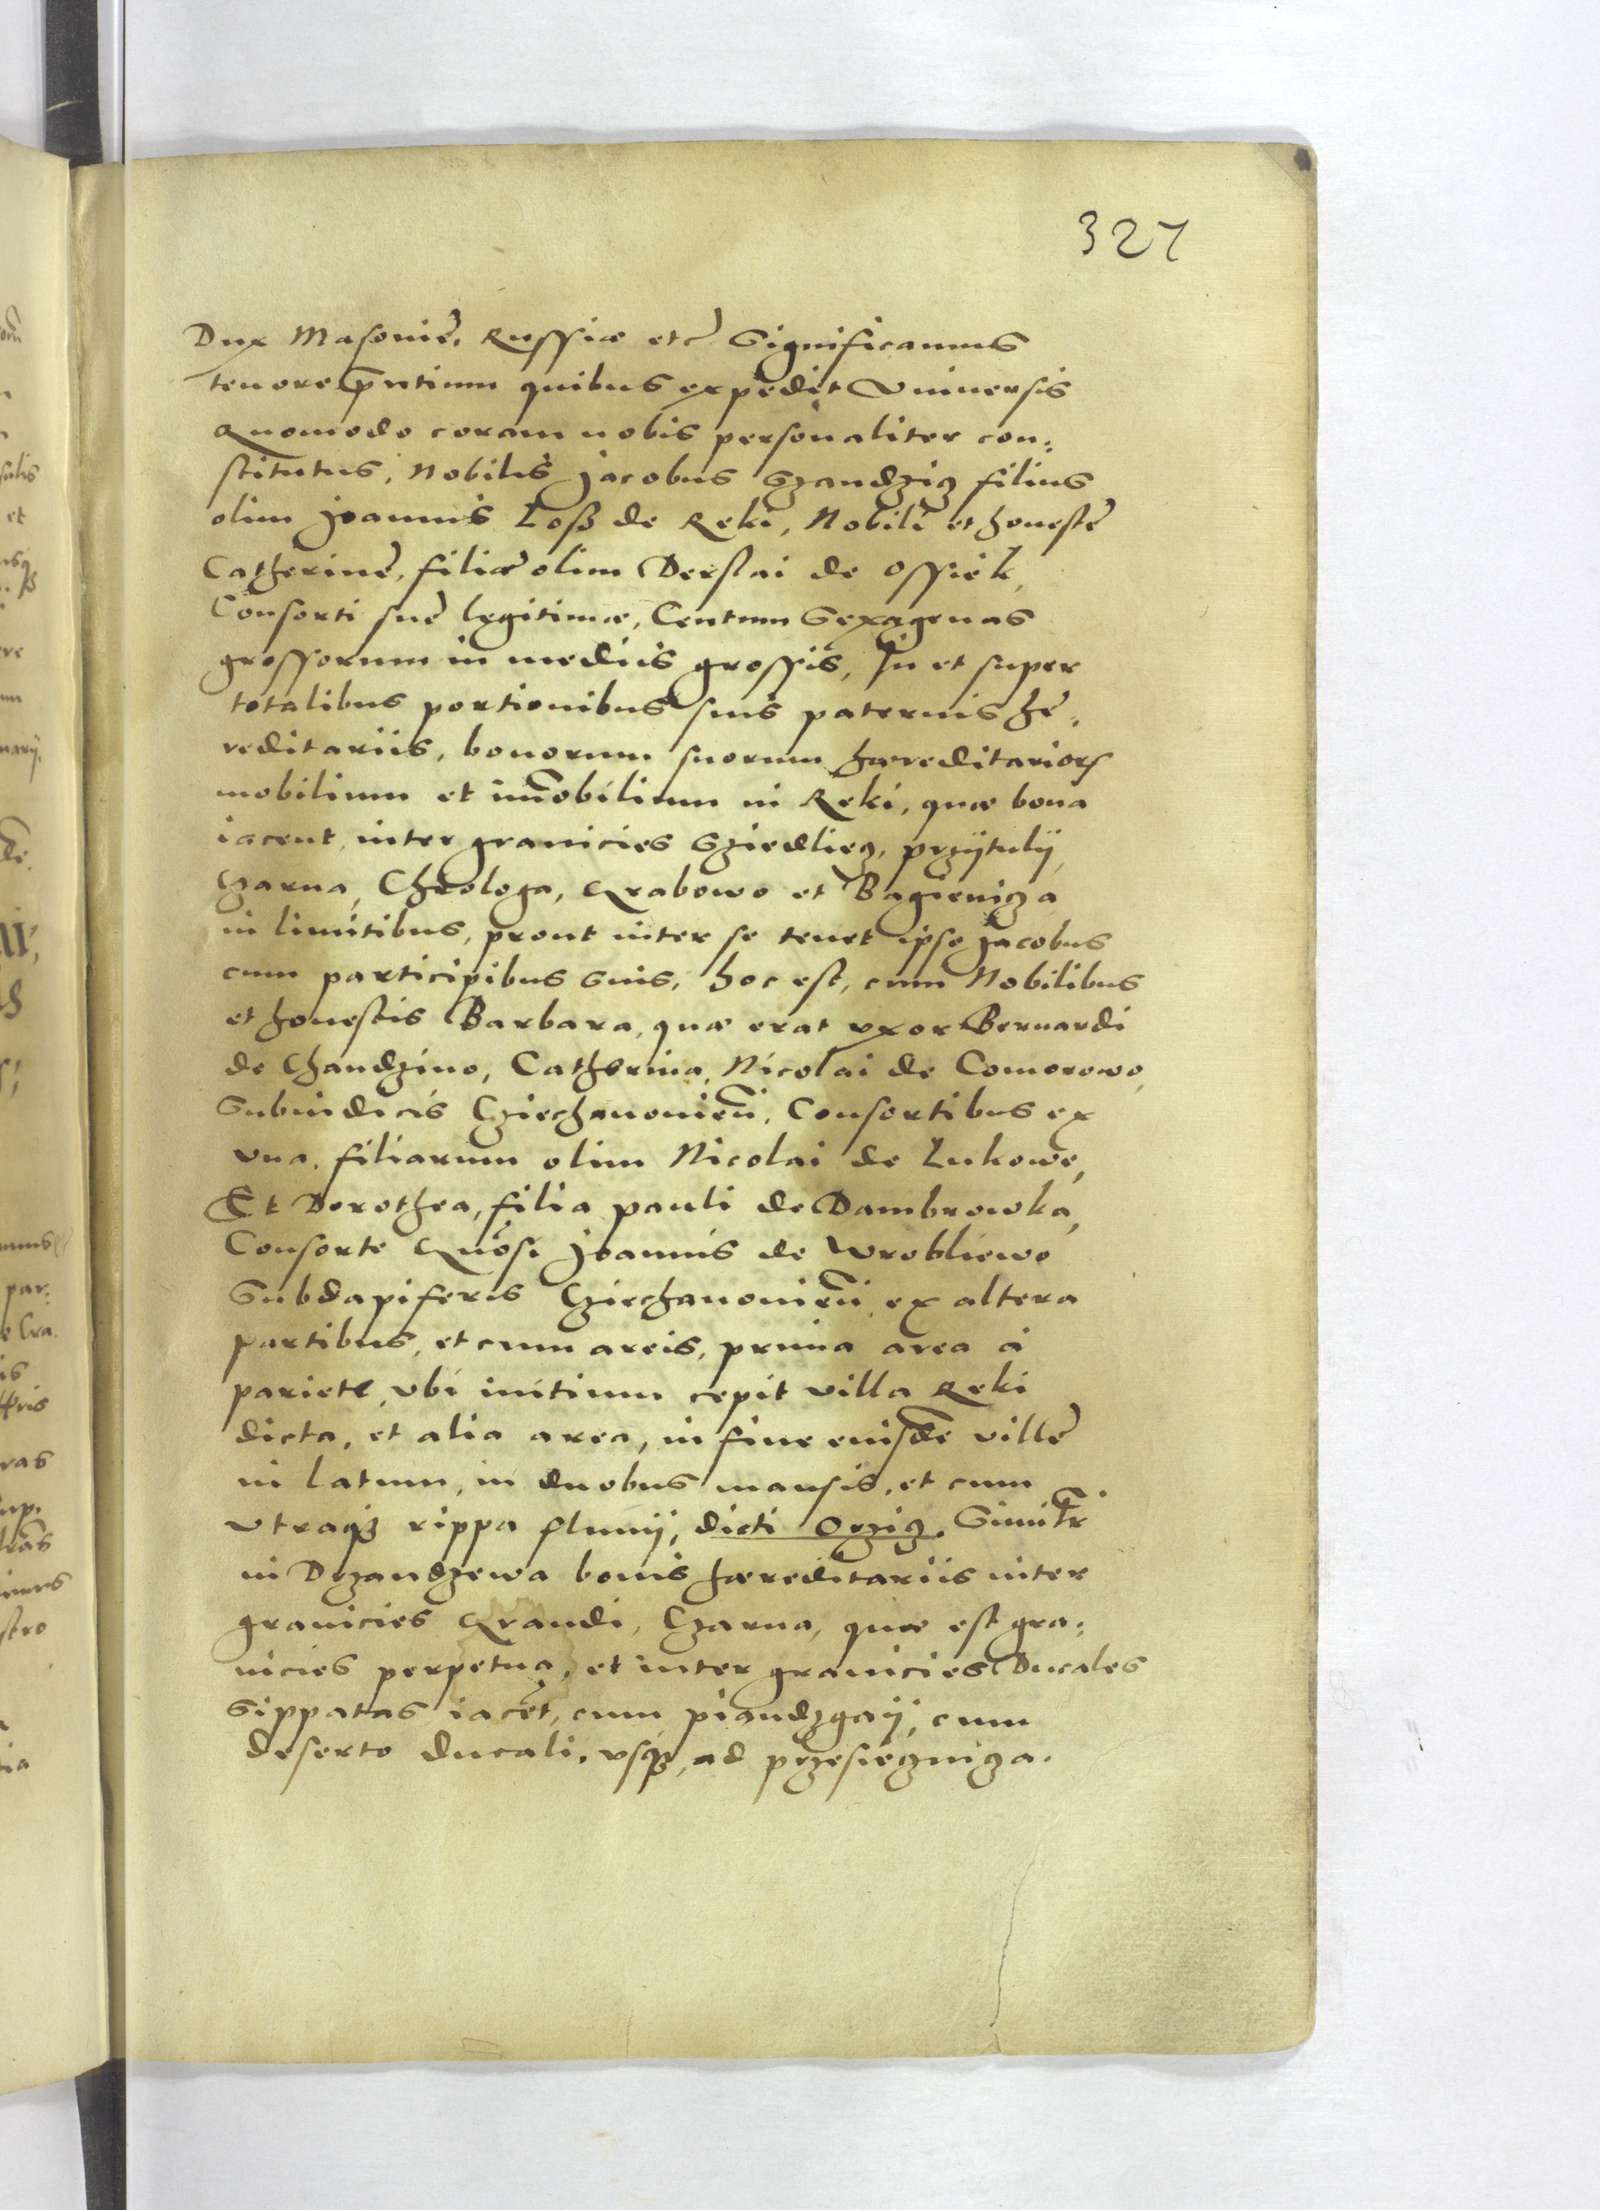 327
Dux Masovię, Russiæ etc Significamus
tenore pr̃ntium quibus expedit Vniuersis
Quomodo coram nobis personaliter con:
stitutus, Nobilis Jacobus Szandzicz filius
olim Joannis Losz de Reki, Nobili et honestę
Catherinę, filiæ olim Derslai de Ossiek,
Consorti suę legitimæ, Centum Sexagenas
grossorum in mediis grossis, In et super
totalibus portionibus suis paternis hę:
reditariis, bonorum suorum hæreditarior̃
mobilium et im̃obilium in Reki, quæ bona
iacent inter granicies Sziedliecz, Przÿtulÿ
Czarna, Chrologa, Grabowo et Bagienicza
in limitibus, prout inter se tenet ipse Jacobus
cum participibus suis, hoc est, cum Nobilibus
et honestis Barbara, quæ erat vxor Bernardi
de Chandzino, Catherina, Nicolai de Comorowo,
Subiudicis Cziechanovień, Consortibus ex
vna, filiarum olim Nicolai de Lukowe,
Et Dorothea, filia Pauli de Dambrowka,
Consorte Gṅosi Joannis de Wrobliewo
Subdapiferis Cziechanovień ex altera
partibus, et cum areis, prima area à
pariete, vbi initium cepit villa Reki
dicta, et alia area, in fine eiusdẽ villę
in latum, in duobus mansis, et cum
vtraq3 rippa fluuij, dicti Orzicz. Similr̃
in Drzandzewa bonis hæreditariis inter
granicies Grandi, Czarna, quæ est gra:
nicies perpetua, et inter granicies Ducales
sippatas iacẽt, cum Piandzgaÿ, cum
deserto ducali, vsq3, ad Przesiecznicza.